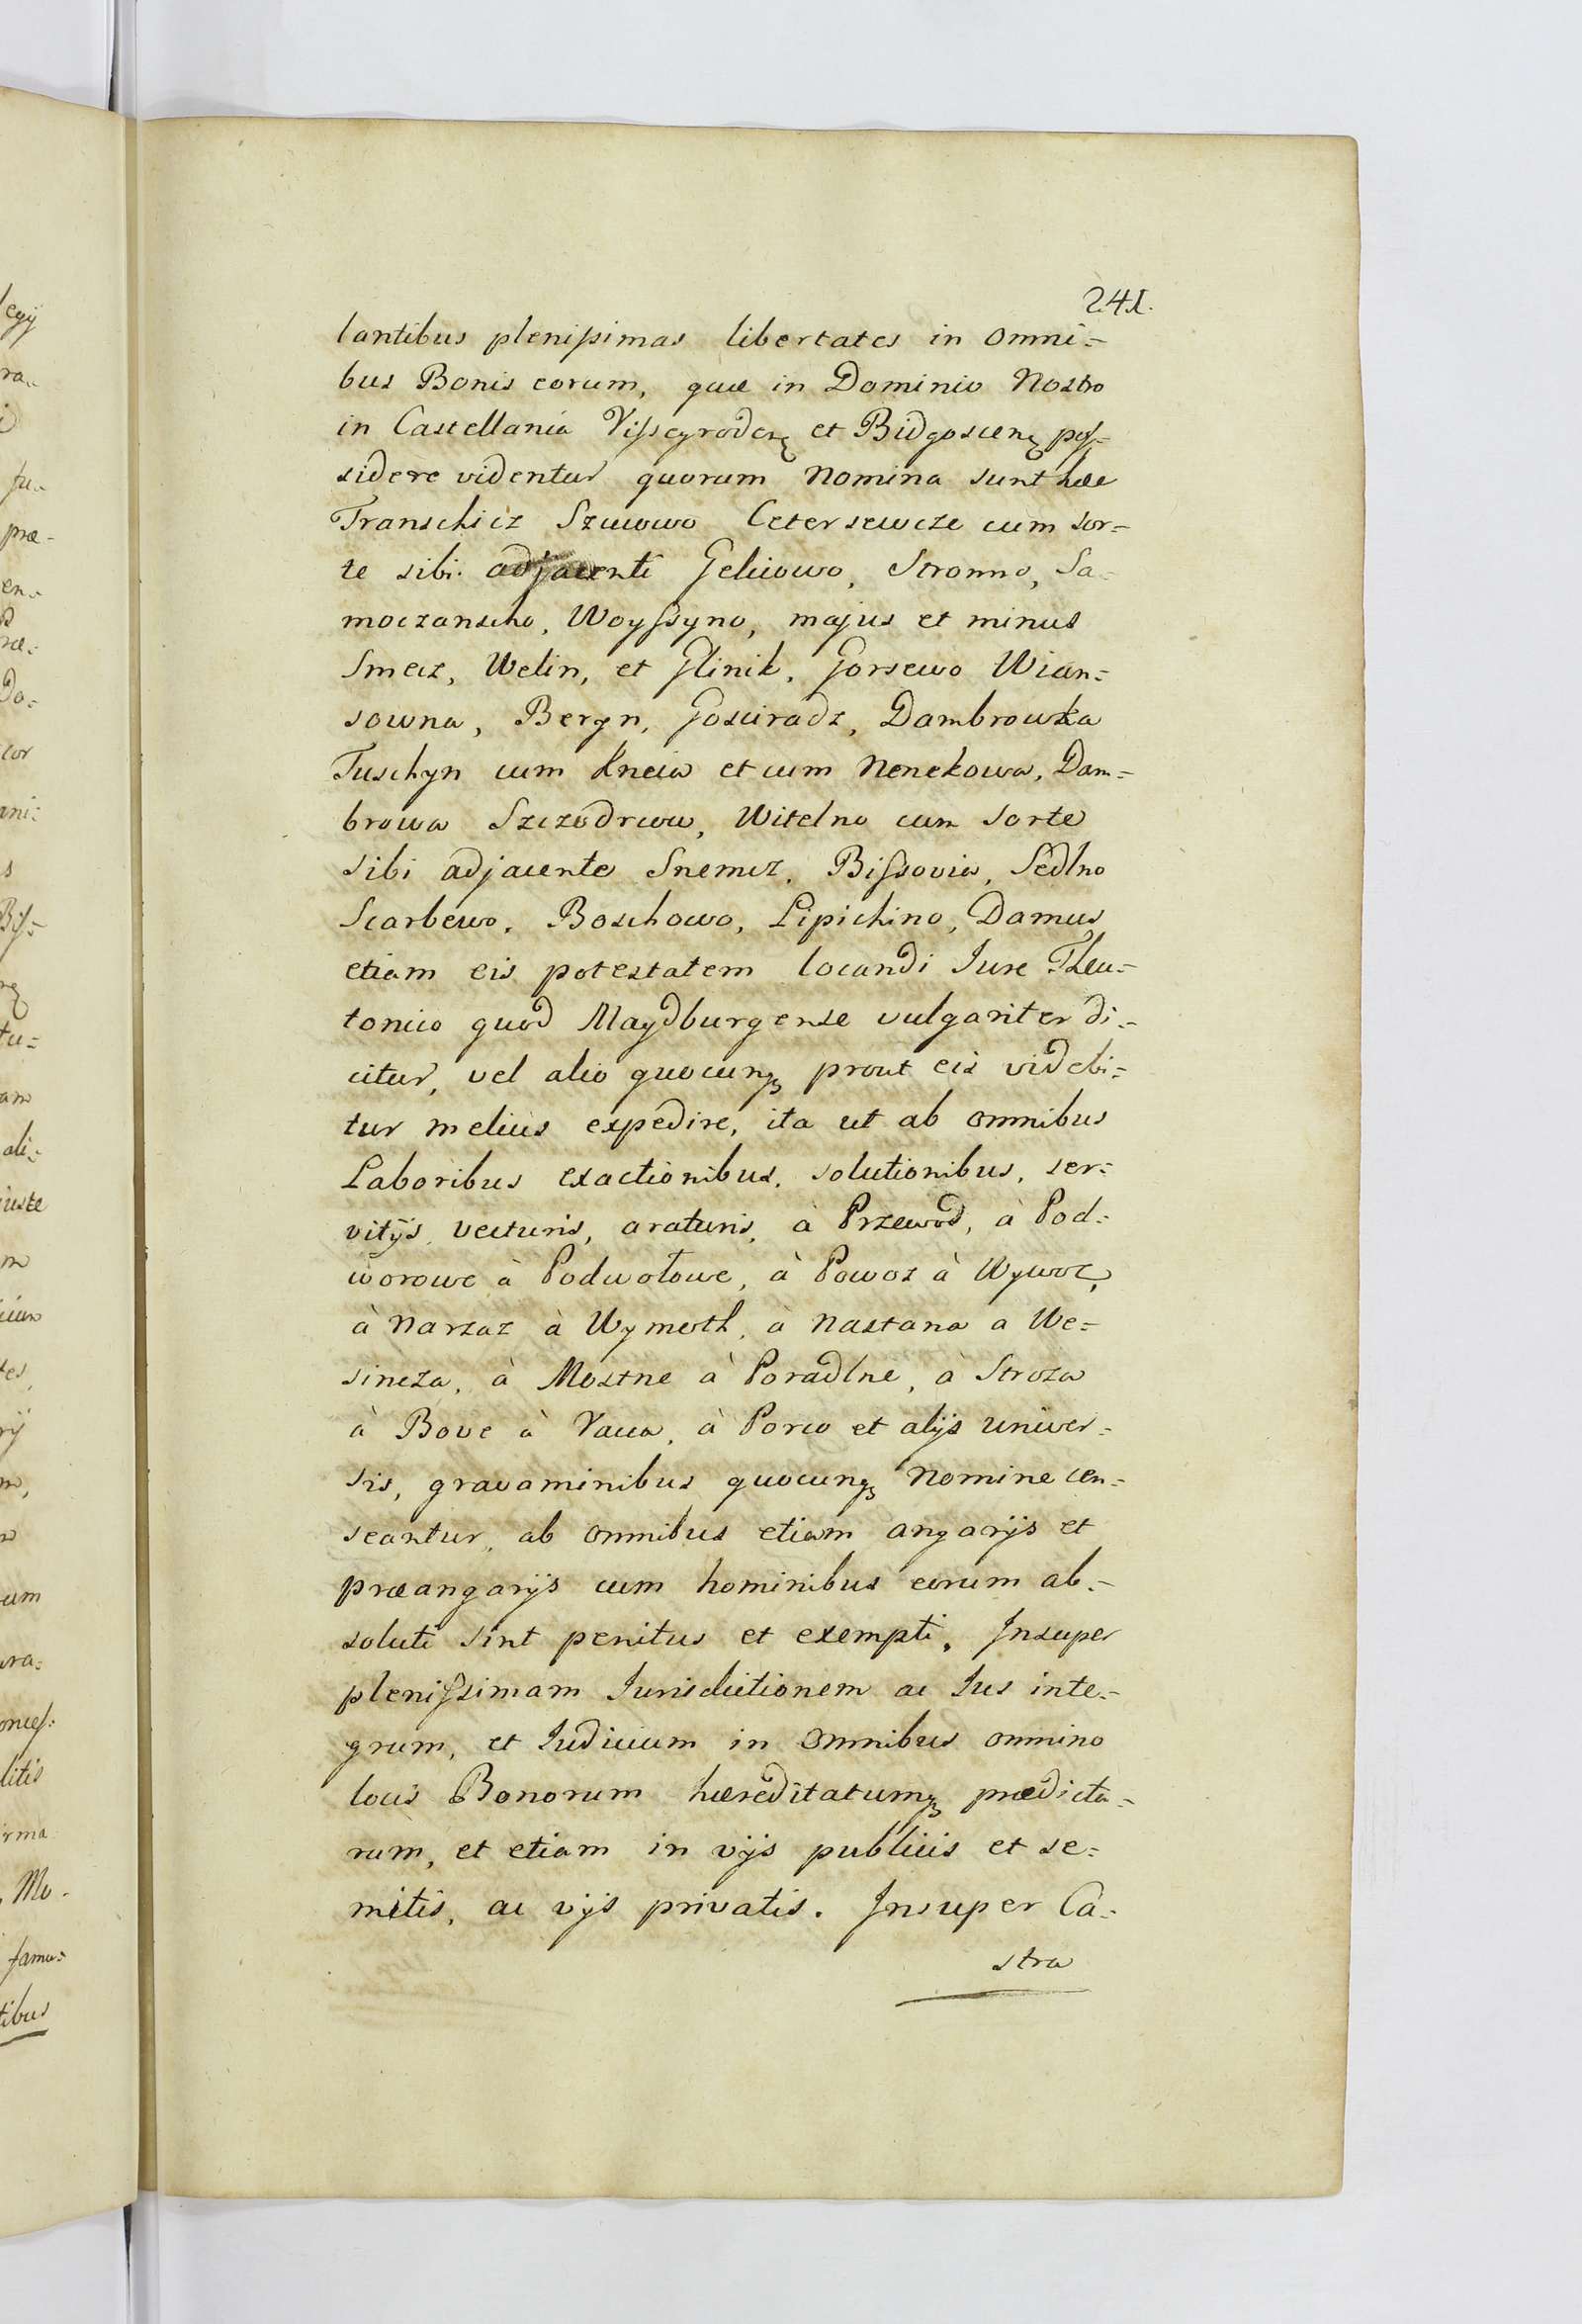 241.
lantibus pleniſsimas libertates in omni=
bus Bonis eorum, quæ in Dominio Nostro
in Castellania Viſsegroden et Bidgoscen poſ=
sidere videntur quorum Nomina sunt hæc
Transchicz Szucowo Cetersewcze cum sor=
te sibi adjacenti Gelucowo, Stronno, Sa=
moczanscho, Woyſsyno, majus et minus
Smecz, Welin, et Glinik, Gorsewo Wian=
sowna, Bergn, Gosciradz, Dambrowka
Tuschyn cum Kneia et cum Nenekowa, Dam=
browa Szczodrowa, Witelno cum sorte
sibi adjacente Snemcz, Biſsovia, Sedlno
Scarbewo, Boschowo, Lipichino, Damus
etiam eis potestatem locandi Iure Theu=
tonico quod Maydburgense vulgariter di=
citur, vel alio quocunqꝫ prout eis videbi=
tur melius expedire, ita ut ab omnibus
Laboribus exactionibus, solutionibus, ser=
vitijs, vecturis, araturis, à Przewod, à Pod=
worowe à Podwołowe, à Powoz à Wywoz,
à Narzaz à Wymoth, à Nastana a We=
sincza, à Mostne à Poradlne, à Stroza
à Bove à Vacca, à Porco et alijs univer=
sis, gravaminibus quocunqꝫ Nomine cen=
seantur, ab omnibus etiam angarijs et
præangarijs cum hominibus eorum ab=
soluti sint penitus et exempti. Insuper
pleniſsimam Iurisdictionem ac Ius inte=
grum, et Iudicium in omnibus omnino
locis Bonorum hæreditatumqꝫ prædicta=
rum, et etiam in vijs publicis et se=
mitis, ac vijs privatis. Insuper Ca=
stra